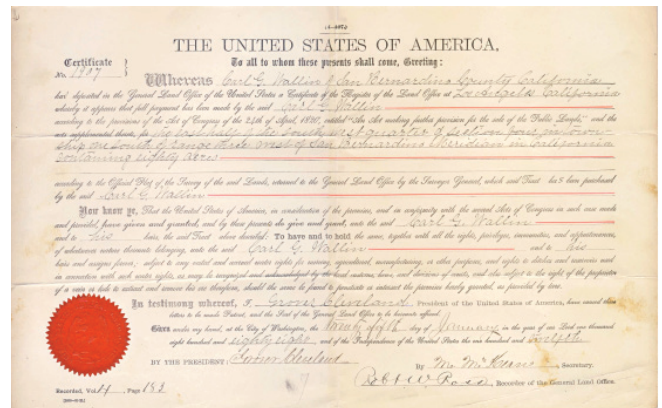 (4-407.)
THE UNITED STATES OF AMERICA,
Certificate
No. 1907
To all to whom these presents shall come, Greeting:
Whereas Carl G. Wallin of San Bernardino County California
has deposited in the General Land Office of the United States a Certificate of the Register of the Land Office at Los Angeles California
whereby it appears that full payment has been made by the said Carl G. Wallin
according to the provisions of the Act of Congress of the 24th of April, 1820, entitled "An Act making further provision for the sale of the Public Lands," and the
acts supplemental thereto, for the East half of the South West quarter of Section four in Town-
ship one South of Range three West of San Bernardino Meridian in California
containing eighty acres
according to the Official Plat of the Survey of the said Lands, returned to the General Land Office by the Surveyor General, which said Tract has been purchased
by the said Carl G. Wallin
Now know ye, That the United States of America, in consideration of the premises, and in conformity with the several Acts of Congress in such case made
and provided, have given and granted, and by these presents do give and grant, unto the said Carl G. Wallin
and to his heirs, the said Tract above described: To have and to hold the same, together with all the rights, privileges, immunities, and appurtenances,
of whatsoever nature thereunto belonging, unto the said Carl G. Wallin and to his
heirs and assigns forever; subject to any vested and accrued water rights for mining, agricultural, manufacturing, or other purposes, and rights to ditches and reservoirs used
in connection with such water rights, as may be recognized and acknowledged by the local customs, laws, and decisions of courts, and also subject to the right of the proprietor
of a vein or lode to extract and remove his ore therefrom, should the same be found to penetrate or intersect the premises hereby granted, as provided by law.
In testimony whereof, I, Grover Cleveland, President of the United States of America, have caused these
letters to be made Patent, and the Seal of the General Land Office to be hereunto affixed.
Given under my hand, at the City of Washington, the day of January, in the year of our Lord one thousand
eight hundred and eighty eight, and of the Independence of the United States the one hundred and twelfth
BY THE PRESIDENT: Grover Cleveland
By M. McKean, Secretary.
Robt W. Ross, Recorder of the General Land Office.
Recorded, Vol. 4, Page 183